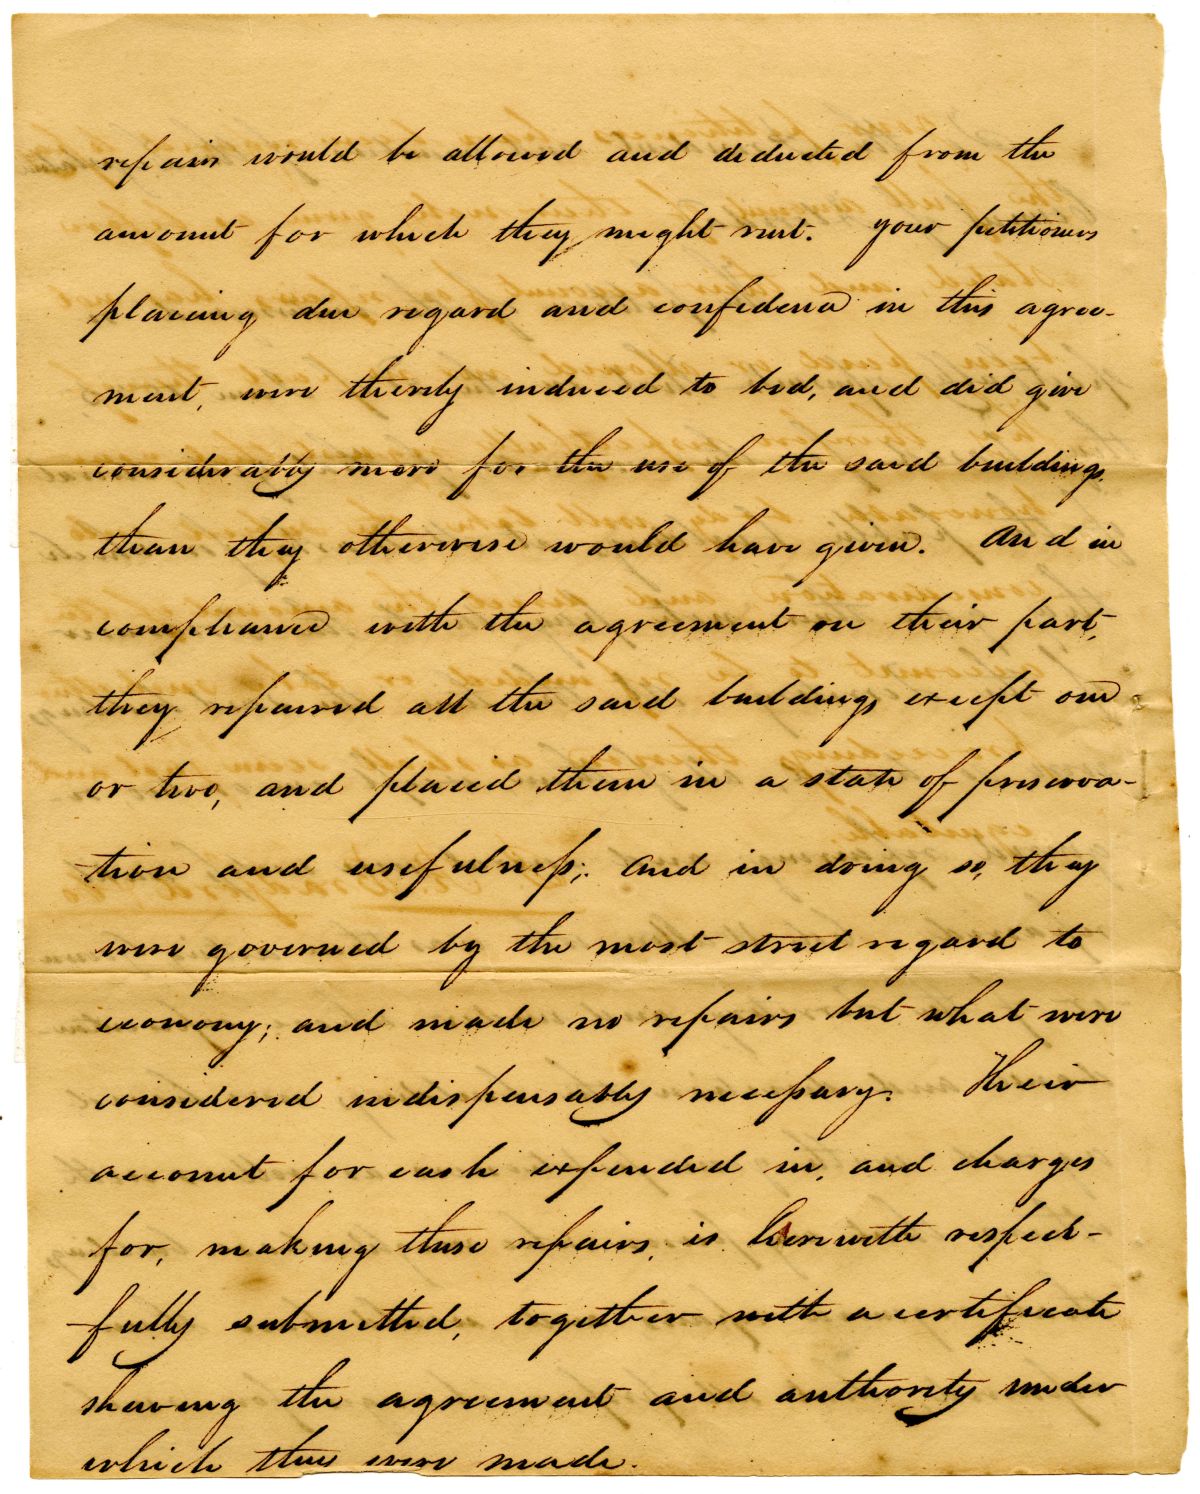 repairs would be allowed and deducted from the
amount for which they might rent. your petitioners
placing due regard and confidence in this agree-
ment, were thereby induced to bid, and did give
considerably more for the use of the said buildings
than they otherwise would have given. And in
compliance with the agreement on their part,
they repaired all the said buildings except one
or two, and placed them in a state of preserva-
tion and usefulness; and in doing so, they
were governed by the most strict regard to
economy; and made no repairs but what were
considered indispensably necessary. Their
account for cash expended in, and charges
for, making these repairs, is herewith respect-
fully submitted, together with a certificate
shewing the agreement and authority under
which they were made.